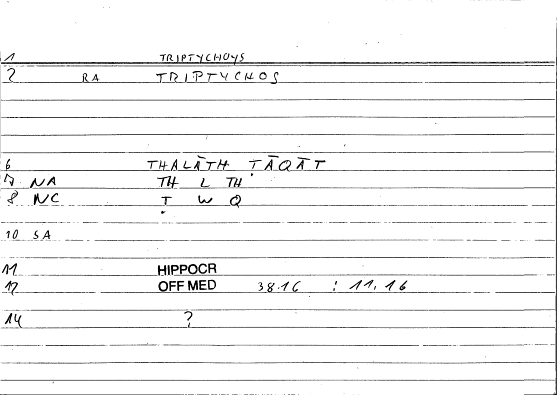 1 TRIPTYCHOYS
2 RA TRIPTYCHOS
6 THALĀTH ṬĀQĀT
7 NA TH L TH
8 NC Ṭ W Q
10 SA
11 HIPPOCR
12 OFF MED 38.16 : 11,16
14 ?